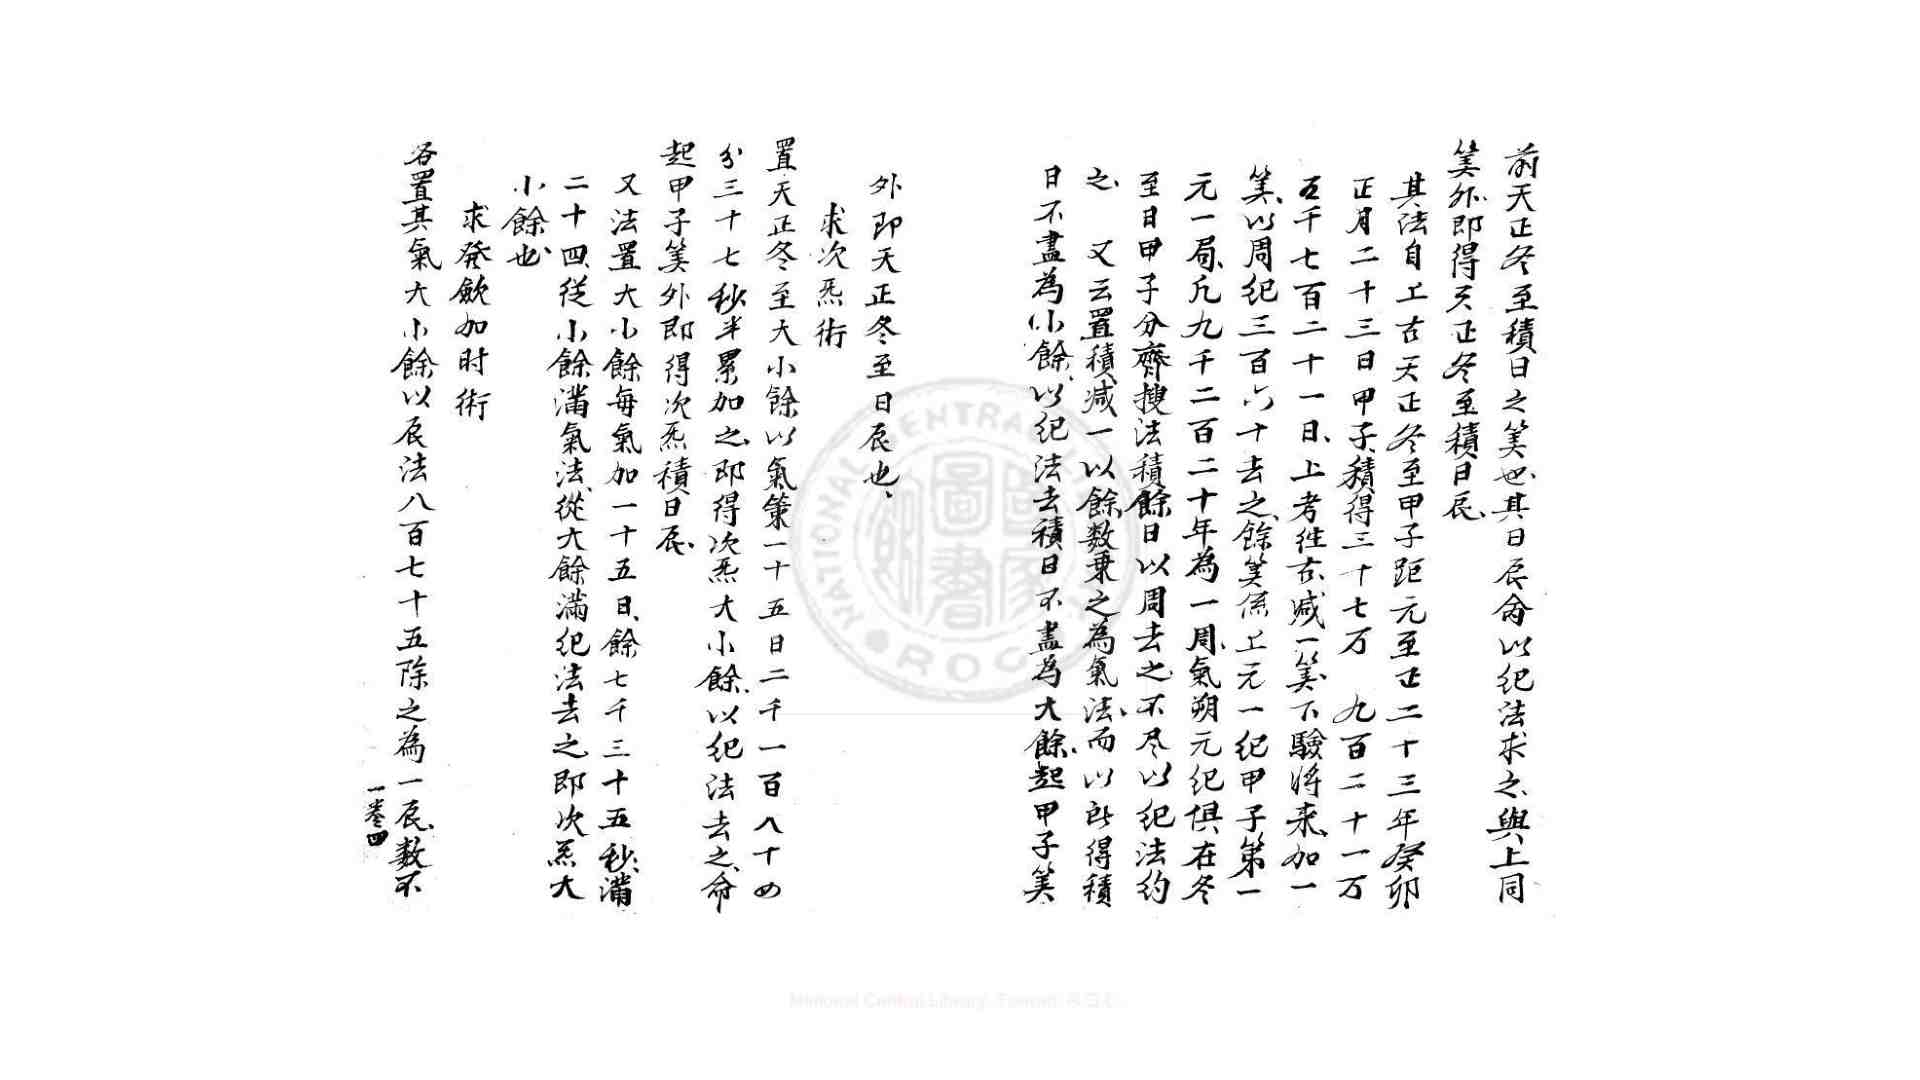 前天正冬至積日之筭也其日辰命以紀法求之與上同
筭外即得天正冬至積日辰
其法自上古天正冬至甲子距元至正二十三年癸卯
正月二十三日甲子積得三十七万 九百二十一万
五千七百二十一日上考徃古减一筭下驗将来加一
筭以周紀三百六十去之餘筭係上元一紀甲子第一
元一局凢九千二百二十年為一周氣朔元紀俱在冬
至日甲子分齊搜法積餘日以周去之不尽以紀法約
之 又云置積减一以餘数乗之為氣法而以所得積
日不盡為小餘以紀法去積日不盡為大餘起甲子筭
外即天正冬至日辰也
求次炁術
置天正冬至大小餘以氣策一十五日二千一百八十四
分三十七秒半累加之即得次炁大小餘以紀法去之命
起甲子筭外即得次炁積日辰
又法置大小餘每氣加一十五日餘七千三十五秒滿
二十四從小餘滿氣法從大餘滿紀法去之即次炁大
小餘也
求發歛加时術
各置其氣大小餘以辰法八百七十五除之為一辰数不
一卷四
NATIONAL CENTRAL LIBRARY
ROC
國家圖書館
National Central Library, Taiwan